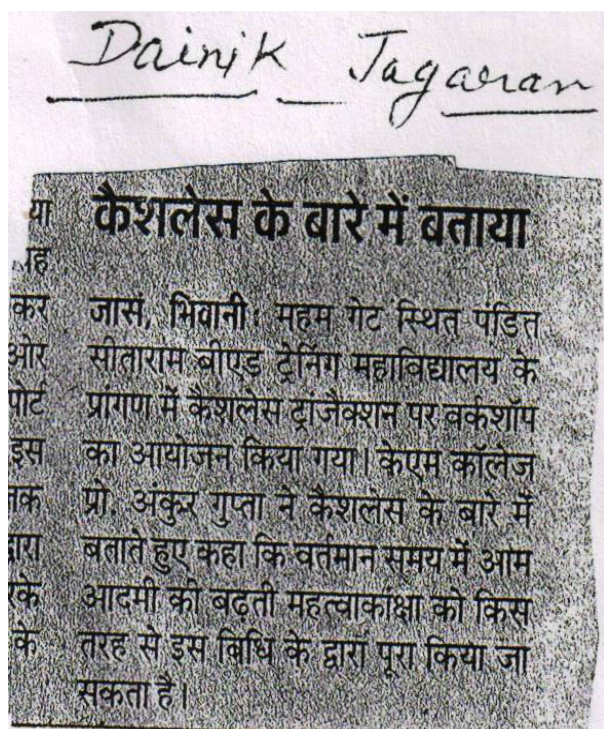 Dainik Jagaran
कैशलेस के बारे में बताया
जासं, भिवानी: महम गेट स्थित पंडित
सीताराम बीएड ट्रेनिंग महाविद्यालय के
प्रांगण में कैशलेस ट्रांजैक्शन पर वर्कशॉप
का आयोजन किया गया। केएम कॉलेज
प्रो. अंकुर गुप्ता ने कैशलेस के बारे में
बताते हुए कहा कि वर्तमान समय में आम
आदमी की बढ़ती महत्वाकांक्षा को किस
तरह से इस विधि के द्वारा पूरा किया जा
सकता है।